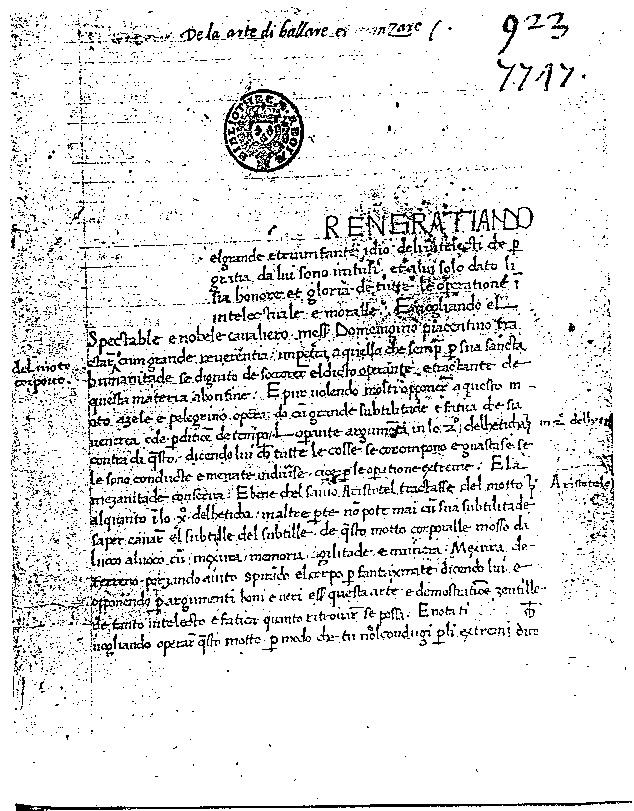 De la arte di ballare et danzare
923
7747.
BIBLIOTHECÆ REGIÆ
RENGRATIANDO
el grande et triumfante idio deli intelecti che p
gratia da lui sono infusi et a lui solo dato li
sia honore et gloria de tutte le operatione ī
intelectiale e moralle. E vogliando el
Spectable e nobele cavaliero mess. Domengino piacentino tra
cum grande reverentia impetra a quella che semp p sua sancta
humanitade se dignito de socorer el disto operante etractante de
questa materia abonfine. E pur volendo molti opponer a questo m
oto azele e pelegrino opera dō cū grande subtilitade e fatica che sia
venerea e de pditicē de tempo. L operante argumēta in lo
contra di q̄sto. dicendo lui ch tutte le cosse se corompono e guastase se
le sono conducte e menate indiverse cioe p le operatione extreme. E la
mezanitade conserva. E bene ch el savio Aristotel tractasse del motto
alquanto ī lo x̊ del hetica. in altre pte nō pote mai cū sua subtilitade
saper cavar el subtille del subtille de q̄sto motto corporalle mosso da
luoco a luoco cū mexura memoria agilitade e mainera. Mexura de
terreno porzando aiuto spirādo el corpo p fantaxmate dicendo lui e
opponendo p argumenti boni e veri ess questa arte e demostratiōe zentille
de tanto intelecto e fatica quanto ritrovar se possi. E nota ti
vogliando operar q̄sto motto p modo che tu nō l condugi p li extremi dico
del moto
corporeo.
Aristotele